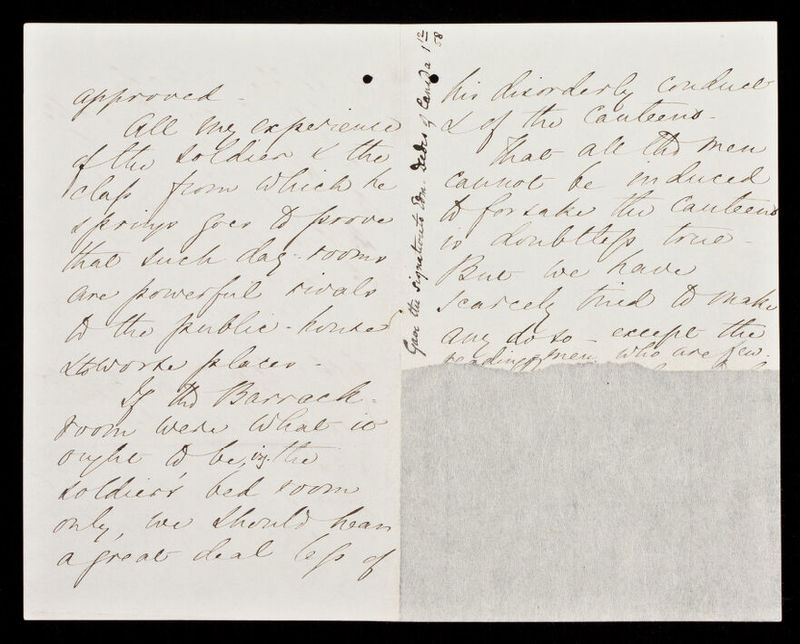 approved -
All my experience
of the soldier & the
class from which he
springs goes to prove
that such day-rooms
are powerful rivals
to the public-house
& to worse places -
If the Barrack-
room were what it
ought to be, viz. the
soldier's bed room
only, we should hear
a great deal less of
Gave the signature to
of Canada 1st
58
his disorderly conduct
& of the Canteens -
That all the men
cannot be induced
to forsake the Canteens
is doubtless true -
But we have
scarcely tried to make
any do so - except the
reading men who are few.